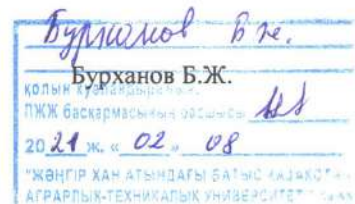 Бурханов Б.Ж.
Бурханов Б.Ж.
қолын куәландырамын.
ПЖЖ басқармасының басшысы
20 21 ж. « 02 » 08
"ЖӘҢГІР ХАН АТЫНДАҒЫ БАТЫС ҚАЗАҚСТАН
АГРАРЛЫҚ-ТЕХНИКАЛЫҚ УНИВЕРСИТЕТІ"